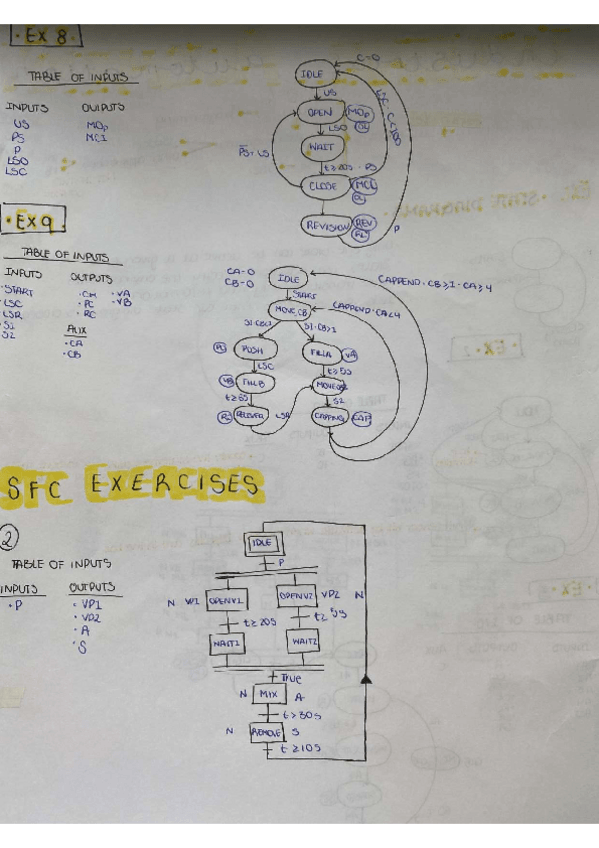 · Ex 8 ·
TABLE OF INPUTS
INPUTS OUTPUTS
US MOp
PS MCI
P
LSO
LSC
C=0
IDLE
US
OPEN MOp
LSO
WAIT
t≥20s · PS
PS+LS
CLOSE MCL
REVISION REV
P
· Ex 9 ·
TABLE OF INPUTS
INPUTS OUTPUTS
· START · CM · VA
· LSC · PC · VB
· LSR · RC
· S1 AUX
· S2 · CA
· CB
CA=0
CB=0
IDLE
START
MOVE,CB
CAPPEND · CB≥1 · CA≥4
CAPPEND · CA<4
S1·CB<1 S1·CB≥1
PC PUSH FILLA VA
LSC t≥5s
VB FILLB
t≥5s S2
RC RECOVER LSR CAPPING CAP
SFC EXERCISES
2
TABLE OF INPUTS
INPUTS OUTPUTS
· P · VP1
· VP2
· A
· S
IDLE
P
N VP1 OPENV1 OPENV2 VP2 N
t≥20s t≥ 5s
WAIT1 WAIT2
True
N MIX A
t>30s
N REMOVE S
t≥10s